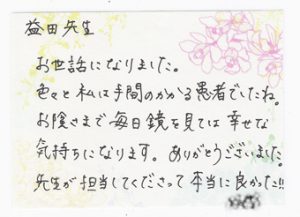 益田先生
お世話になりました。
色々と私は手間のかかる患者でしたね。
お陰さまで毎日鏡を見ては幸せな
気持ちになります。ありがとうございました。
先生が担当してくださって本当に良かった!!